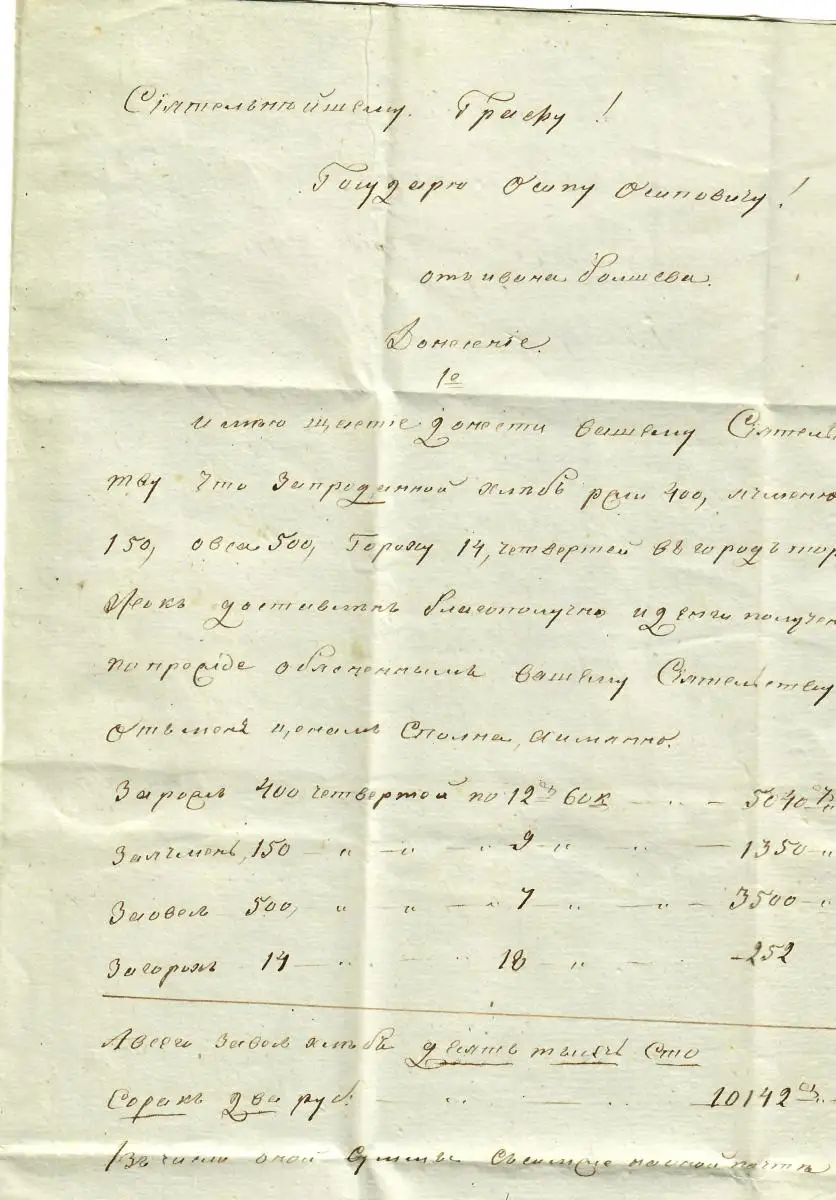 Сіятельнѣйшему. Графу!
Государю Осипу Осиповичу!
отъ ивана
Донесеніе.
1е
имѣю щастіе донести вашему Сіятельс
тву что Запроданной хлѣбъ ржи 400, ячменю
150, овса 500, Гороху 14, четвертей въ городъ тор
жокъ доставленъ благополучно и денги получен
попрежде объясненнымъ вашему Сіятельству
отъ меня ценамъ Сполна, аимянно.
За рожь 400 четвертей по 12 60к — 5040
Заячмень, 150 — „ — „ — „ 9 — „ „ — 1350 — „
Заовесъ 500, „ „ — „ 7 „ — „ — 3500 — „
Загорохъ 14 — „ — „ 18 „ — „ — 252
Авсего Завесь хлѣбъ десять тысячь Сто
Сорокъ два руб. — „ — „ — 10142
Въ числѣ оной Суммы